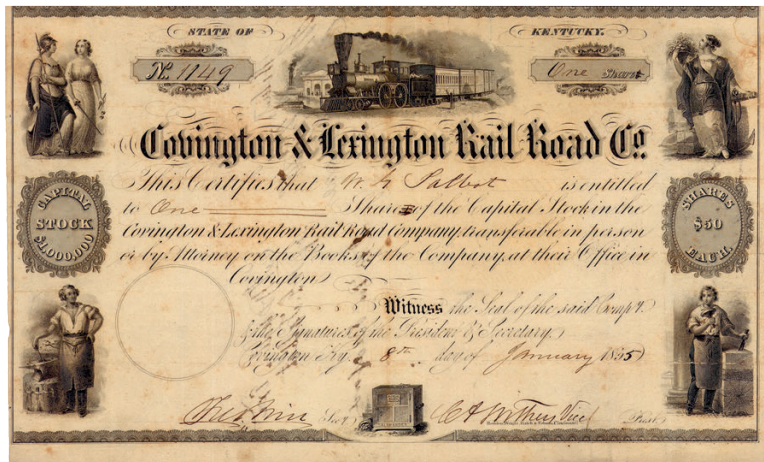 STATE OF KENTUCKY.
No. 1149
One Share
Covington & Lexington Rail Road Co.
This Certifies that W. Talbot is entitled
to One Share of the Capital Stock in the
Covington & Lexington Rail Road Company, transferable in person
or by Attorney on the Books of the Company, at their Office in
Covington
CAPITAL STOCK $1,000,000
SHARES $50 EACH.
Witness the Seal of the said Compy.
& the Signatures of the President & Secretary.
Covington Ky. 8th day of January 1855
Secy.
Prest.